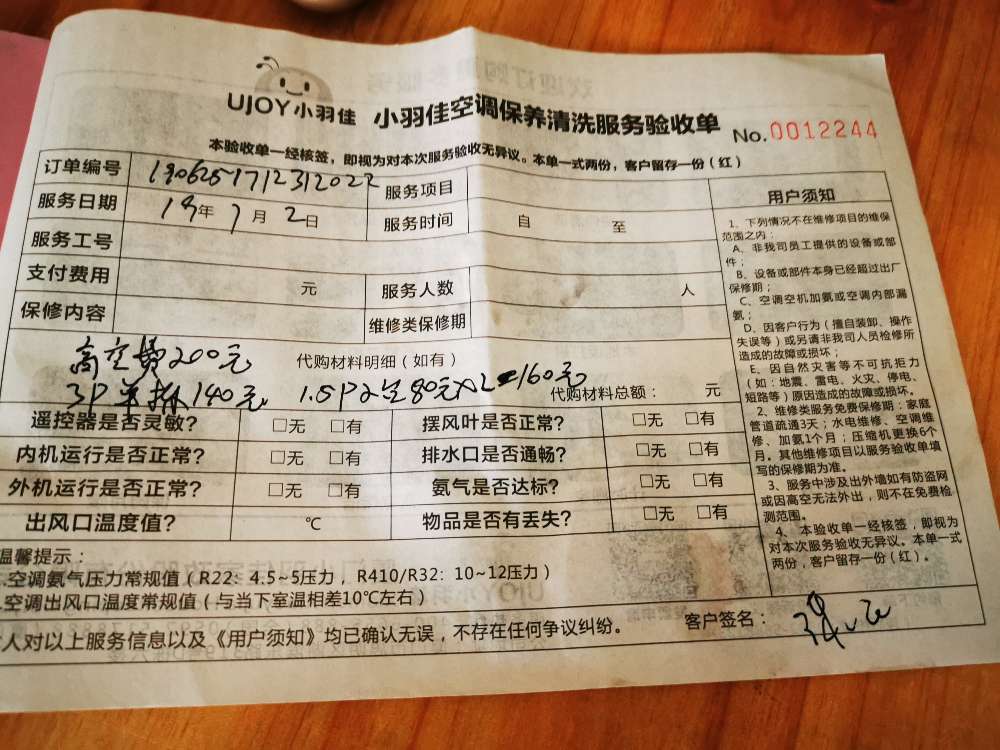 UJOY小羽佳 小羽佳空调保养清洗服务验收单 No.0012244
本验收单一经核签，即视为对本次服务验收无异议。本单一式两份，客户留存一份（红）
订单编号 服务项目
服务日期 19年7月2日 服务时间 自 至
服务工号
支付费用 元 服务人数 人
保修内容 维修类保修期
高空费200元 代购材料明细（如有）
3P 140元 1.5P 80元×2=160元 代购材料总额： 元
遥控器是否灵敏? □无 □有 摆风叶是否正常? □无 □有
内机运行是否正常? □无 □有 排水口是否通畅? □无 □有
外机运行是否正常? □无 □有 氨气是否达标? □无 □有
出风口温度值? ℃ 物品是否有丢失? □无 □有
温馨提示：
.空调氨气压力常规值（R22：4.5~5压力，R410/R32：10~12压力）
.空调出风口温度常规值（与当下室温相差10℃左右）
人对以上服务信息以及《用户须知》均已确认无误，不存在任何争议纠纷。 客户签名：
用户须知
1、下列情况不在维修项目的维保
范围之内：
A、非我司员工提供的设备或部
件；
B、设备或部件本身已经超过出厂
保修期；
C、空调空机加氨或空调内部漏
氨；
D、因客户行为（擅自装卸、操作
失误等）或另请非我司人员检修所
造成的故障或损坏；
E、因自然灾害等不可抗拒力
（如：地震、雷电、火灾、停电、
短路等）原因造成的故障或损坏。
2、维修类服务免费保修期：家庭
管道疏通3天；水电维修、空调维
修、加氨1个月；压缩机更换6个
月。其他维修项目以服务验收单填
写的保修期为准。
3、服务中涉及出外墙如有防盗网
或因高空无法外出，则不在免费检
测范围。
4、本验收单一经核签，即视为
对本次服务验收无异议。本单一式
两份，客户留存一份（红）。